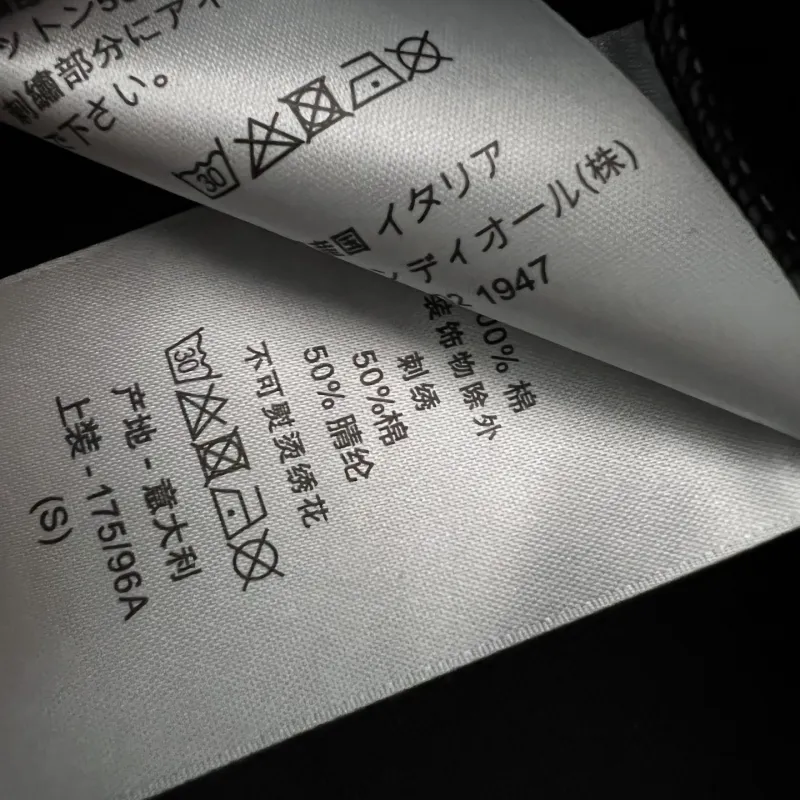 ットン
刺繍部分にアイ
下さい。
30
国 イタリア
ディオール(株)
1947
0% 棉
装饰物除外
刺绣
50%棉
50% 腈纶
不可熨烫绣花
30
产地 - 意大利
上装 - 175/96A
(S)